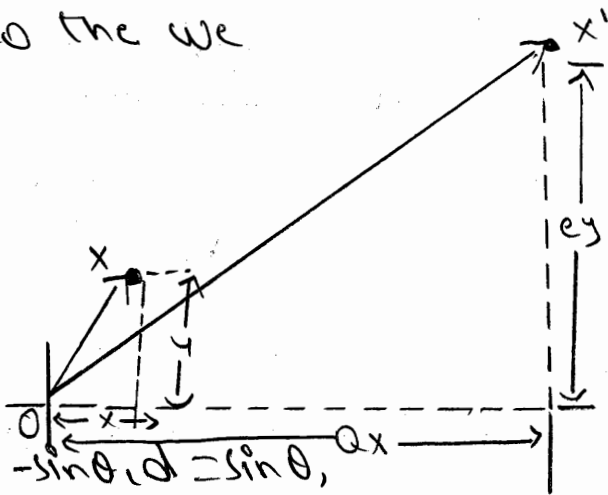 o the we
x'
x
ey
y
O x
Qx
-sinθ, d = sinθ,